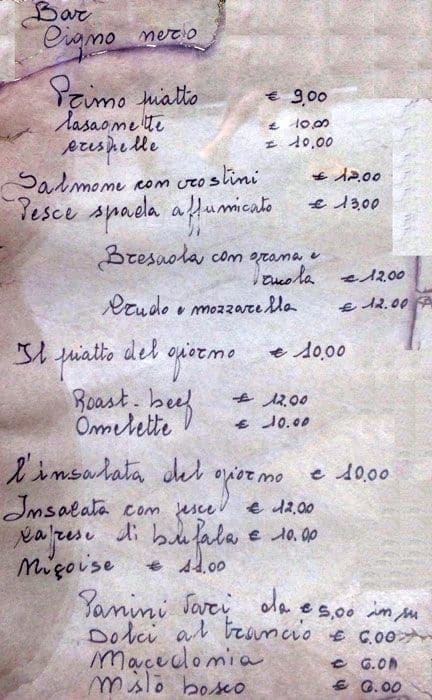 Bar
Cigno nero
Primo piatto € 9,00
lasagnette € 10,00
crespelle € 10,00
Salmone con crostini € 12.00
Pesce spada affumicato € 13,00
Bresaola con grana e
rucola € 12.00
Crudo e mozzarella € 12.00
Il piatto del giorno € 10,00
Roast-beef € 12.00
Omelette € 10.00
l'insalata del giorno € 10.00
Insalata con pesce € 12.00
Caprese di bufala € 10.00
Niçoise € 11.00
Panini vari da € 5,00 in su
Dolci al trancio € 6.00
Macedonia € 6.00
Misto bosco € 6.00